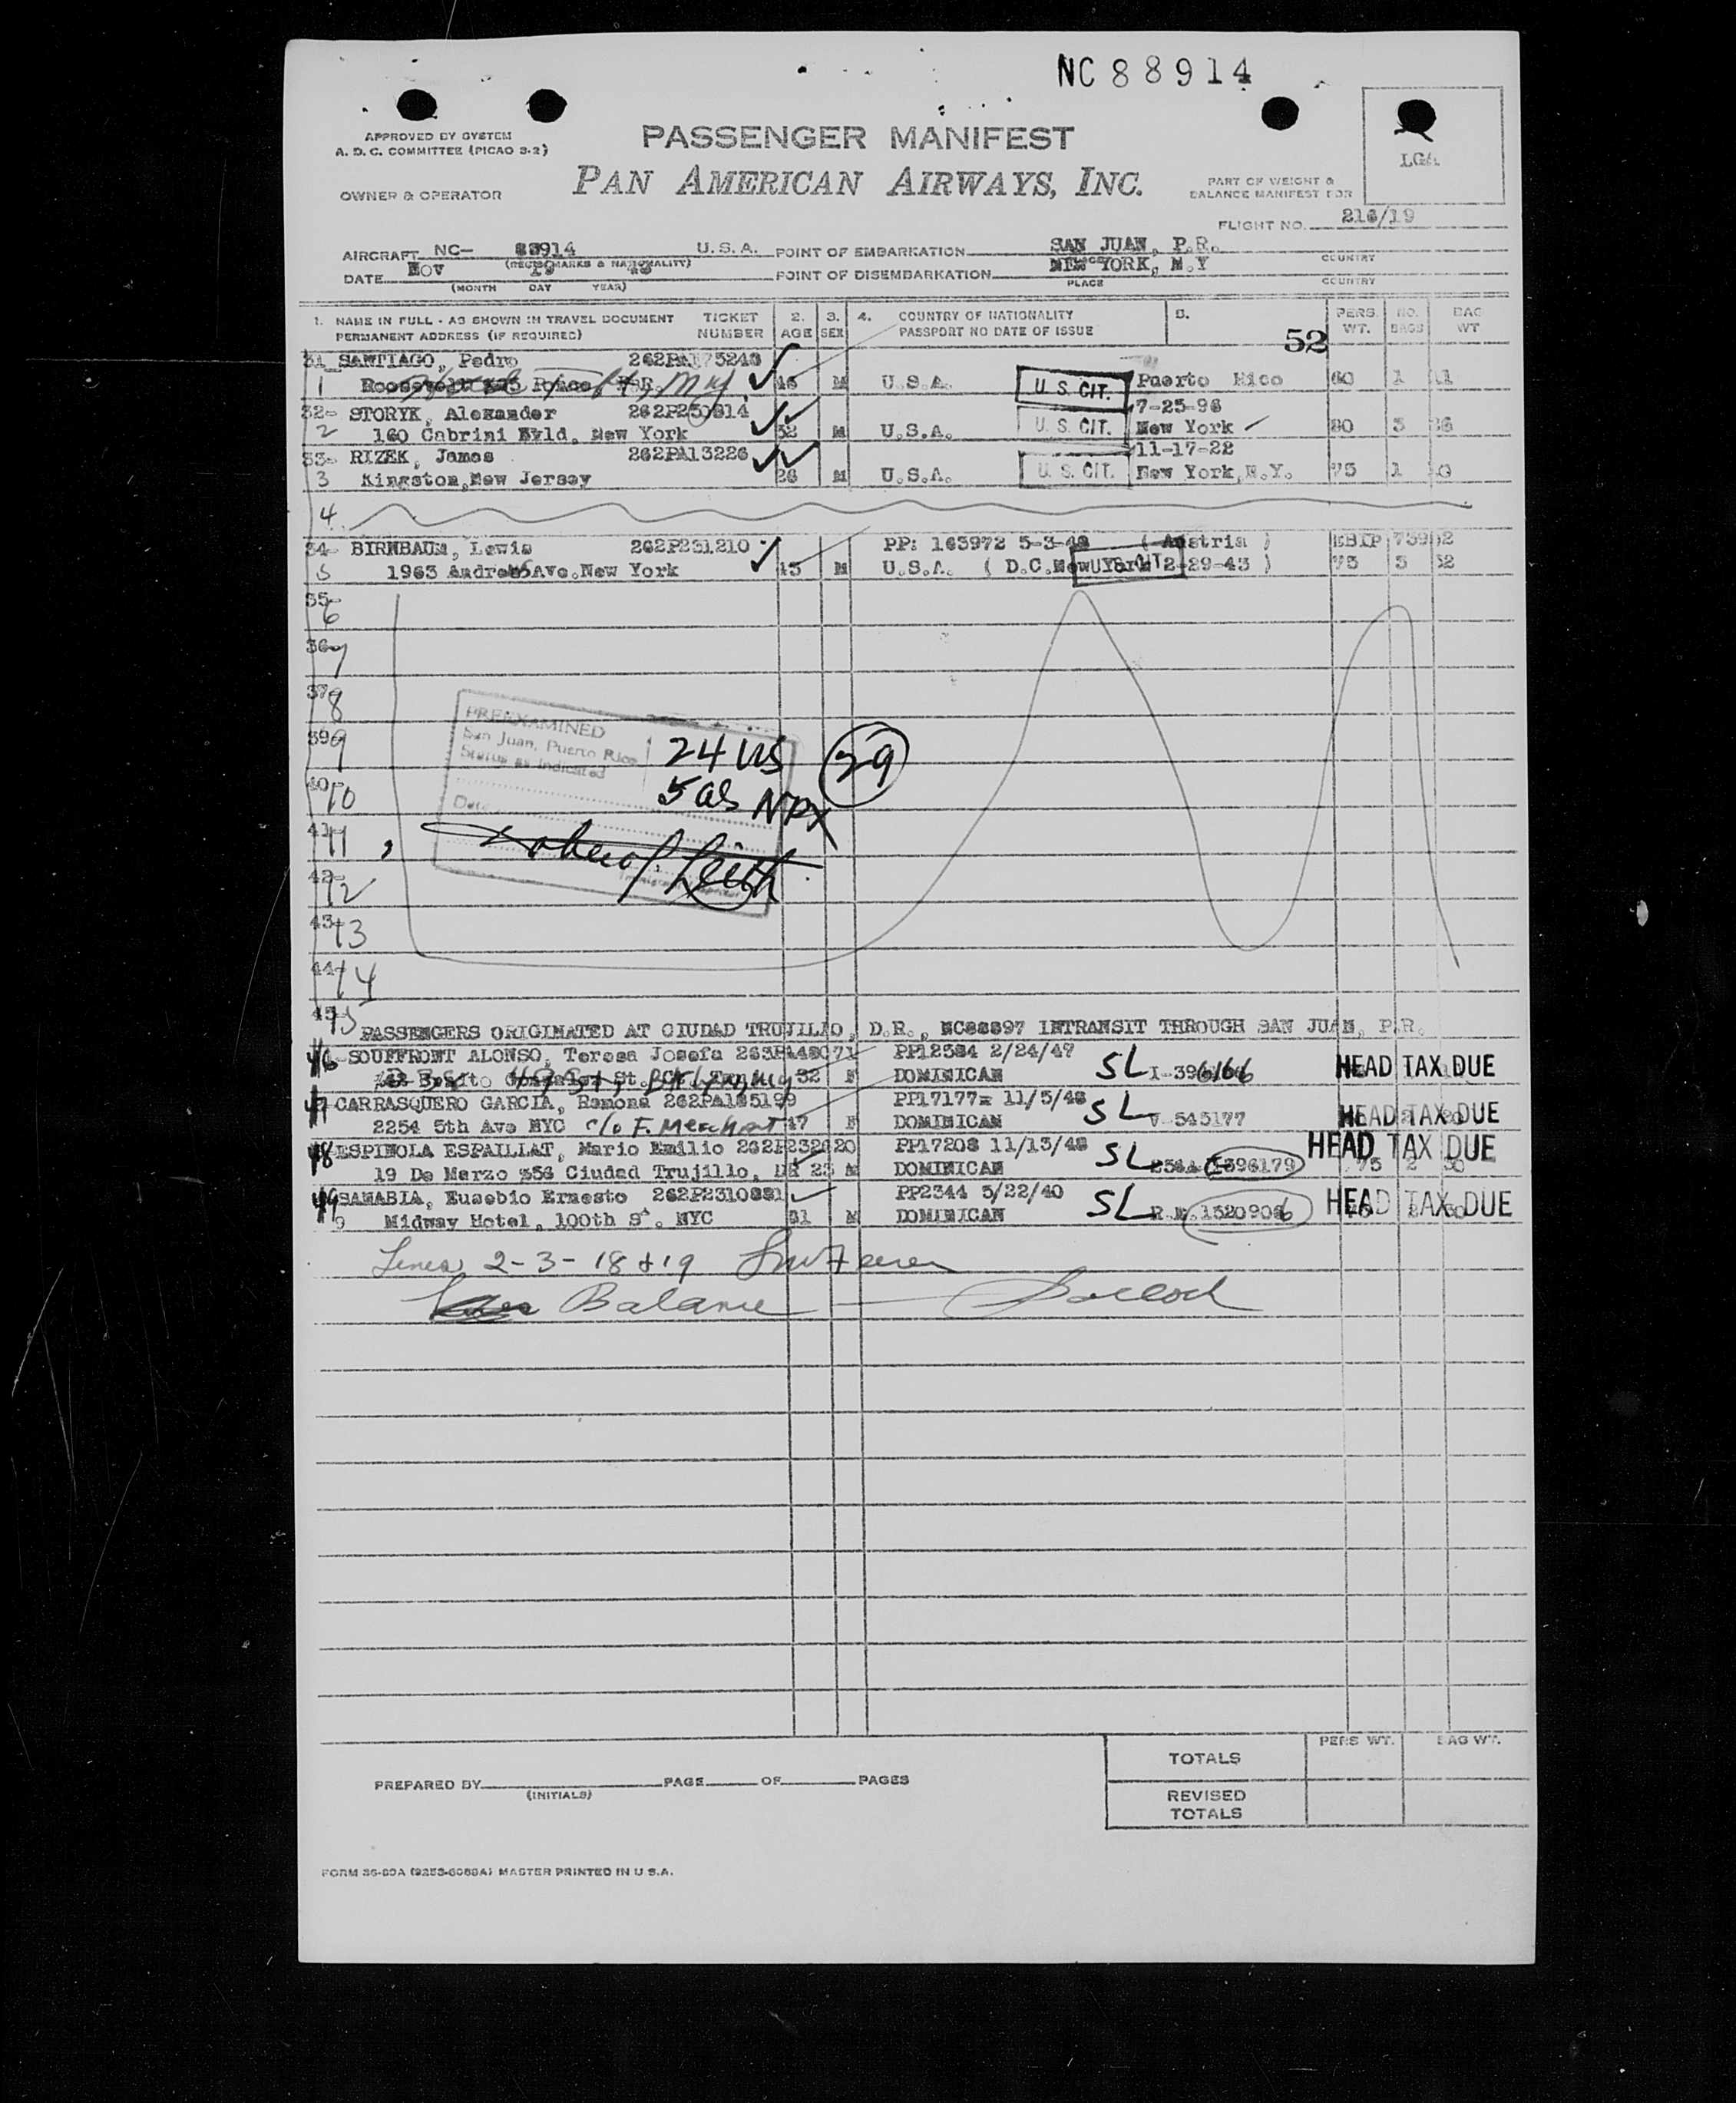 NC 88914
APPROVED BY SYSTEM
A. D. C. COMMITTEE (PICAO 3-2)
PASSENGER MANIFEST
LGA
OWNER & OPERATOR
PAN AMERICAN AIRWAYS, INC.
PART OF WEIGHT &
BALANCE MANIFEST FOR
FLIGHT NO. 216/19
AIRCRAFT NC- 88914 U.S.A. POINT OF EMBARKATION SAN JUAN, P.R.
(REGIS MARKS & NATIONALITY) COUNTRY
DATE NOV 19 POINT OF DISEMBARKATION NEW YORK, N.Y
(MONTH DAY YEAR) PLACE COUNTRY
1. NAME IN FULL - AS SHOWN IN TRAVEL DOCUMENT TICKET 2. 3. 4. COUNTRY OF NATIONALITY 5. PERS. NO. BAG
PERMANENT ADDRESS (IF REQUIRED) NUMBER AGE SEX PASSPORT NO DATE OF ISSUE 52 WT. BAGS WT
31 SANTIAGO, Pedro 262PA175248
1 M U.S.A. U.S. CIT. Puerto Rico 60 1
32- STORYK, Alexander 7-25-96
2 160 Cabrini Bvld. New York 52 M U.S.A. U.S. CIT. New York 80
33- RIZEK, James 262PA13226 11-17-22
3 Kingston, New Jersey 26 M U.S.A. U.S. CIT. New York, N.Y. 75 1
4
34- BIRNBAUM, Lewis 262P231210 PP: 163972 5-3-48 ( Austria )
5 1963 Andrews Ave. New York M U.S.A. ( D.C. New York 2-29-43 ) U.S. CIT.
35-
6
36-
7
37
8
39
9
40-
10
41-
11
42-
12
43-
13
44-
14
45-
15
PREEXAMINED
San Juan, Puerto Rico
Status as indicated
Date
24 US 29
5 as NPX
PASSENGERS ORIGINATED AT CIUDAD TRUJILLO, D.R., NC88897 INTRANSIT THROUGH SAN JUAN, P.R.
46- SOUFFRONT ALONSO, Teresa Josefa PP12584 2/24/47
32 F DOMINICAN SL I-396166 HEAD TAX DUE
47- CARRASQUERO GARCIA, Ramona PP17177 11/5/48
2254 5th Ave NYC c/o F. Merchant 47 F DOMINICAN SL V-545177 HEAD TAX DUE
48 ESPINOLA ESPAILLAT, Mario Emilio 262P232620 PP17208 11/15/48
19 De Marzo #56 Ciudad Trujillo, DR 23 M DOMINICAN SL I-396179 HEAD TAX DUE
49 SANABIA, Eusebio Ernesto PP2344 5/22/40
9 Midway Hotel, 100th St. NYC 31 M DOMINICAN SL HEAD TAX DUE
Lines 2-3-18 & 19
Balance
PERS WT. BAG WT.
TOTALS
PREPARED BY PAGE OF PAGES
(INITIALS)
REVISED
TOTALS
MASTER PRINTED IN U S.A.